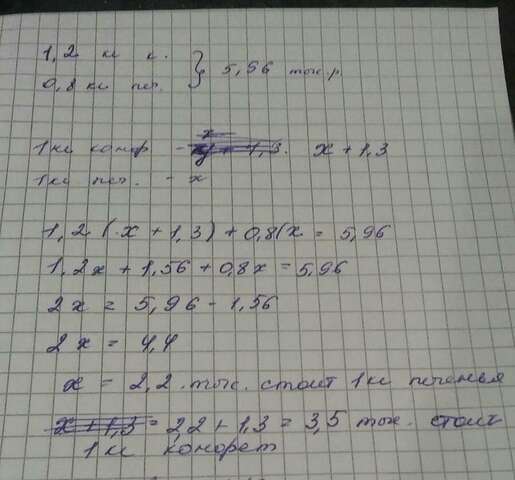 1,2 кг к.
0,8 кг печ. } 5,96 тыс.р
1 кг конф - x + 1,3
1 кг печ. - x
1,2 (x + 1,3) + 0,8(x = 5,96
1,2x + 1,56 + 0,8x = 5,96
2x = 5,96 - 1,56
2x = 4,4
x = 2,2 тыс. стоит 1 кг печенья
x + 1,3 = 2,2 + 1,3 = 3,5 тыс. стоит
1 кг конфет